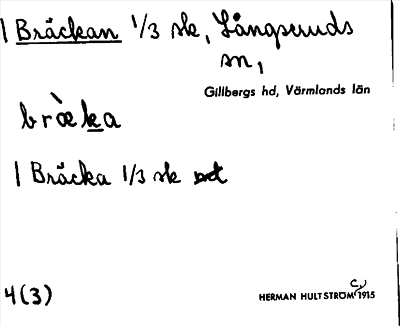 | Bräckan 1/3 sk, Långseruds
sn,
Gillbergs hd, Värmlands län
bræ̀ka
| Bräcka 1/3 sk
4(3)
HERMAN HULTSTRÖM 1915